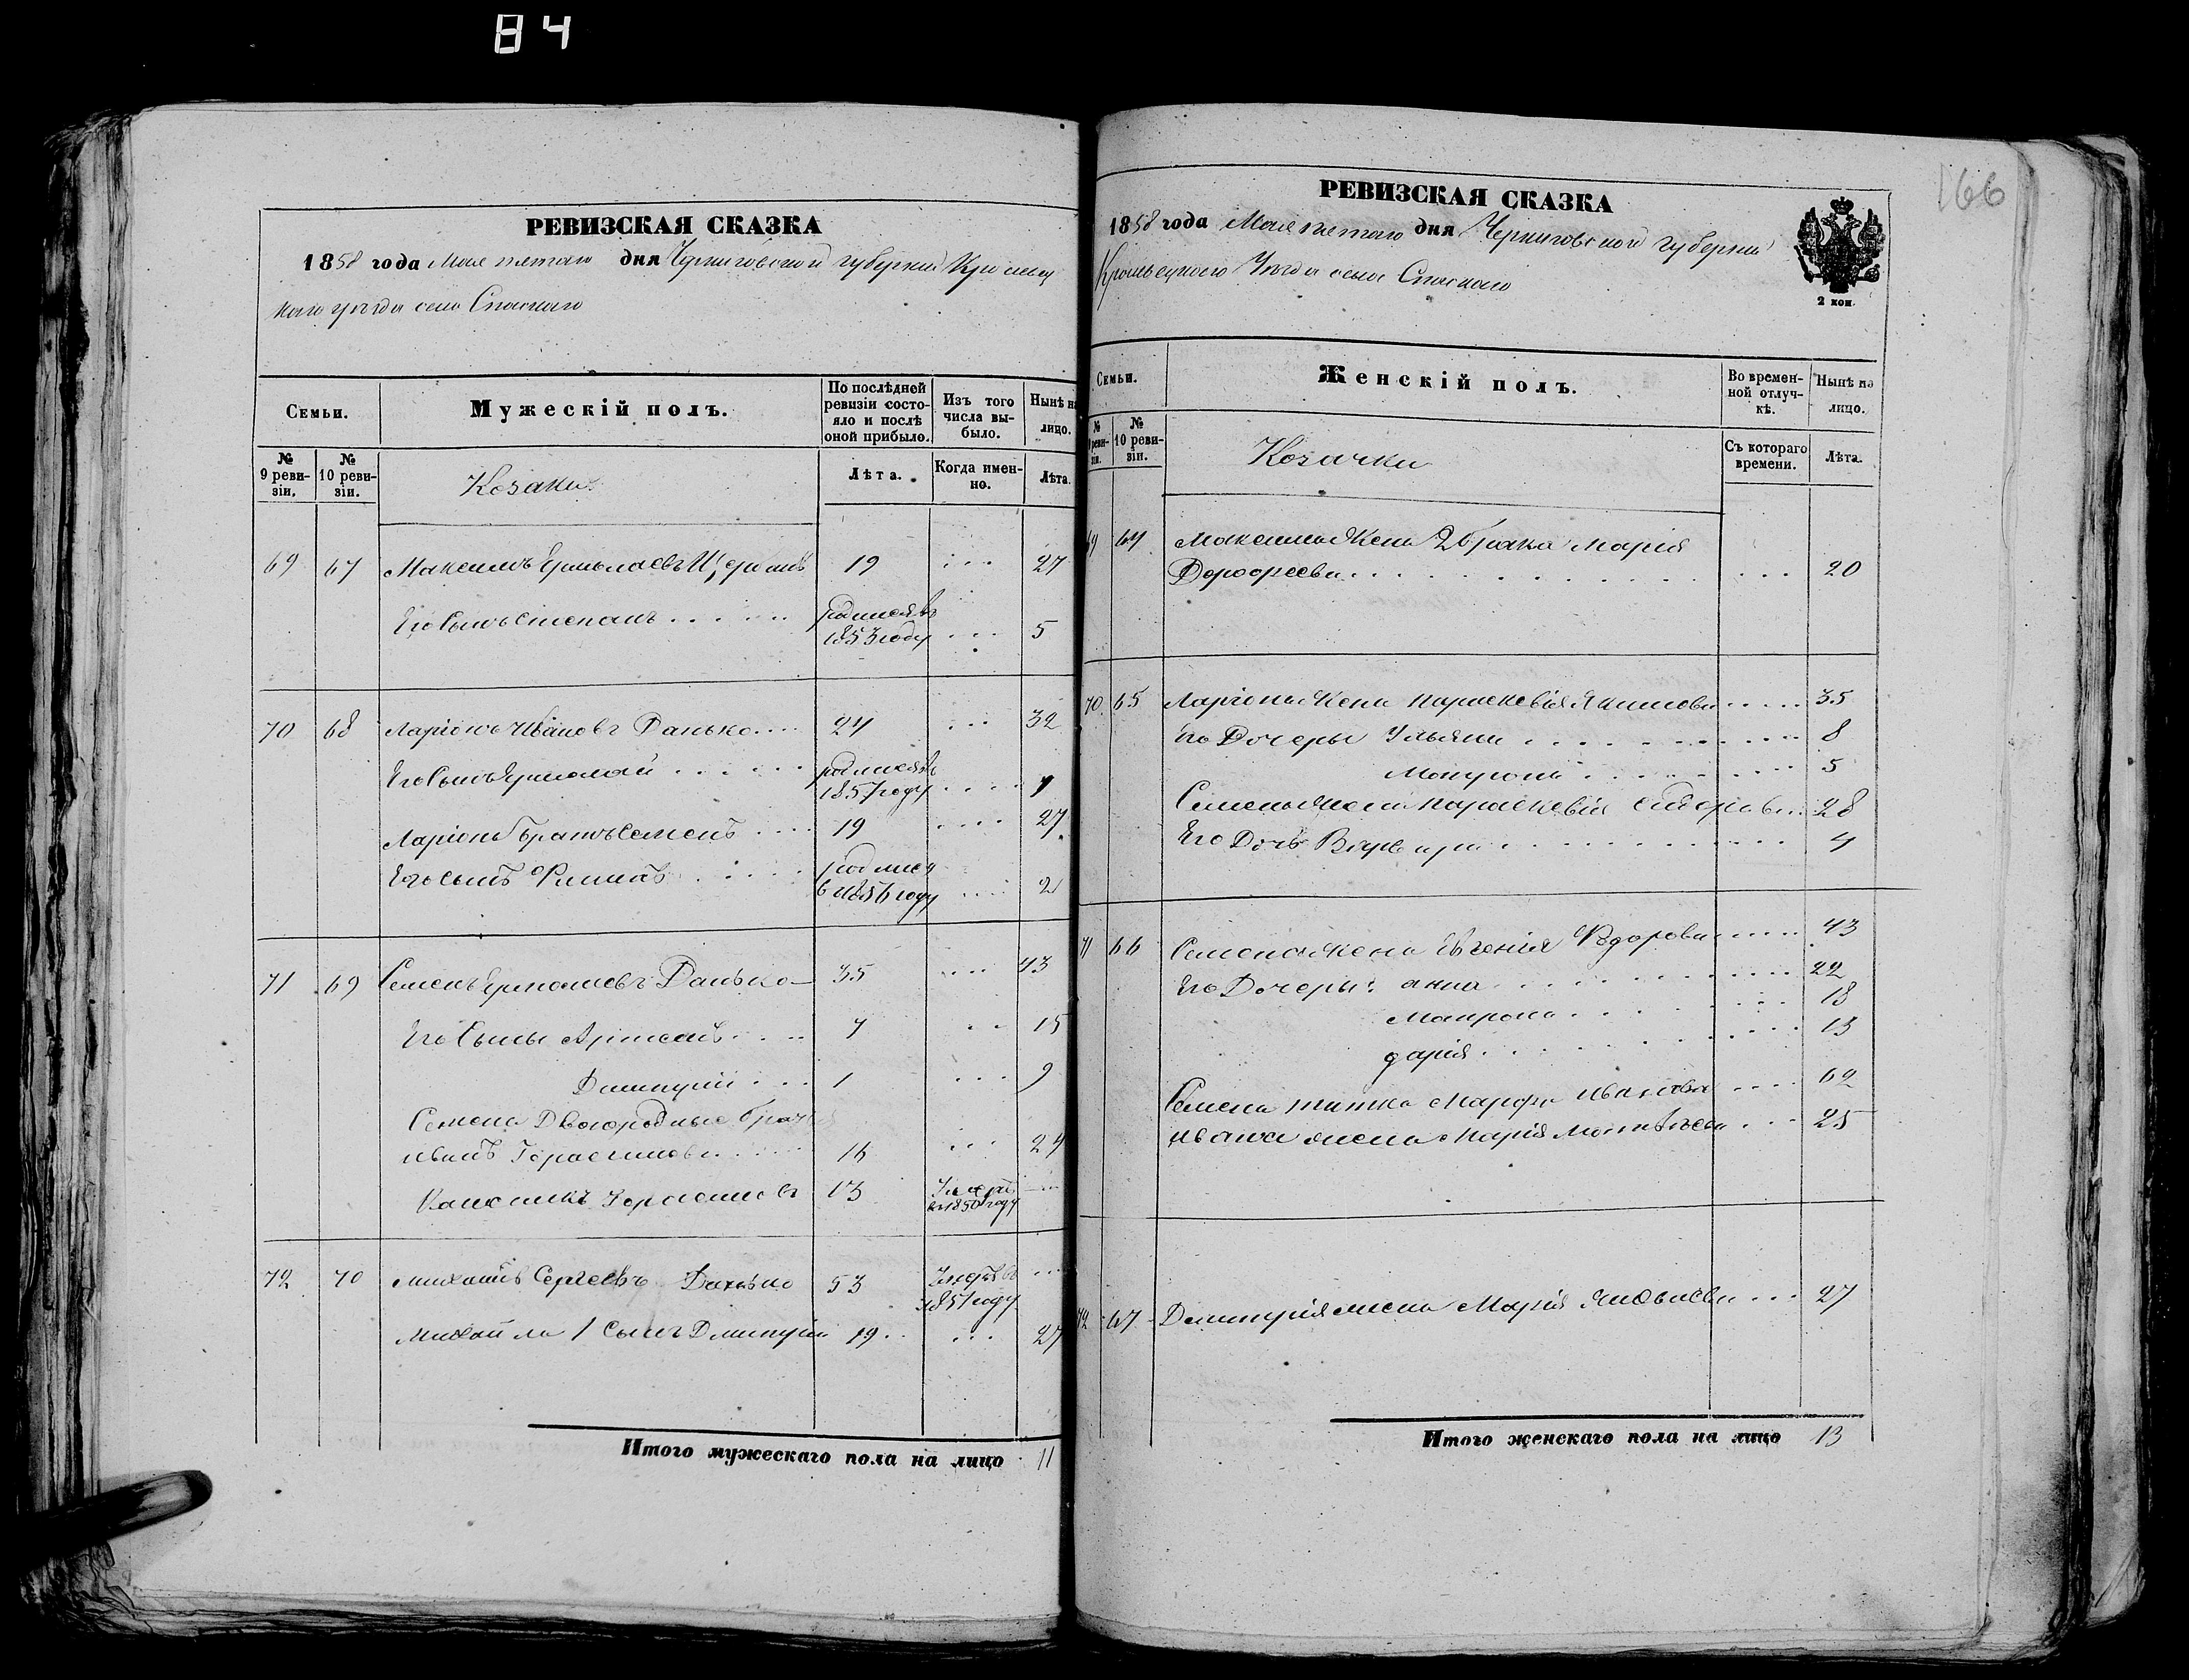 84
166
РЕВИЗСКАЯ СКАЗКА
1858 года Мая пятаго дня Черниговской губерніи Кролевец
каго уѣзда села Спаскаго
Семьи.
Мужескій полъ.
По послѣдней ревизіи состояло и послѣ оной прибыло.
Изъ того числа выбыло.
Нынѣ на лицо.
№ 9 ревизіи.
№ 10 ревизіи.
Козаки
Лѣта.
Когда именно.
Лѣта.
69 67 Максимъ Ермолаевъ 19 27
Его Сынъ Степанъ родился въ 1853 году 5
70 68 Ларіонъ Ивановъ Данько 24 32
Его Сынъ Ермолай родился въ 1857 году 1
Ларіона братъ Семенъ 19 27
Его сынъ Филипъ родился въ 1856 году 2
71 69 Семенъ Ермолаевъ Данько 35 43
Его Сыны Артемъ 7 15
Димитрій 1 9
Семена Двоюродные братья
Иванъ Герасимовъ 16 24
Герасимовъ 13 Умеръ въ 1850 году
72 70 Михаилъ Сергеевъ Данько 53 Умеръ въ 1851 году
Михайла 1 Сынъ Димитрій 19 27
Итого мужескаго пола на лицо 11
РЕВИЗСКАЯ СКАЗКА
1858 года Мая пятаго дня Черниговской губерніи
Кролевецкого Уѣзда села Спаскаго
2 коп.
Семьи.
Женскій полъ.
Во временной отлучкѣ.
Нынѣ на лицо.
№ 9 ревизіи.
№ 10 ревизіи.
Козачки
Съ котораго времени.
Лѣта.
69 64 Максима Жена 2 брака Марія
Дорофеева 20
70 65 Ларіона Жена Параскевія Якимова 35
Его Дочеры Ульяна 8
Мотрона 5
Семена Жена Параскевія Сидорова 28
Его Дочь Варвара 4
71 66 Семена Жена Евгенія Федорова 43
Его Дочеры: Анна 22
Матрона 18
Дарія 13
Семена титка Марфа Иванова 62
Ивана жена Марія 25
72 67 Димитрія жена Марія 27
Итого женскаго пола на лицо 13